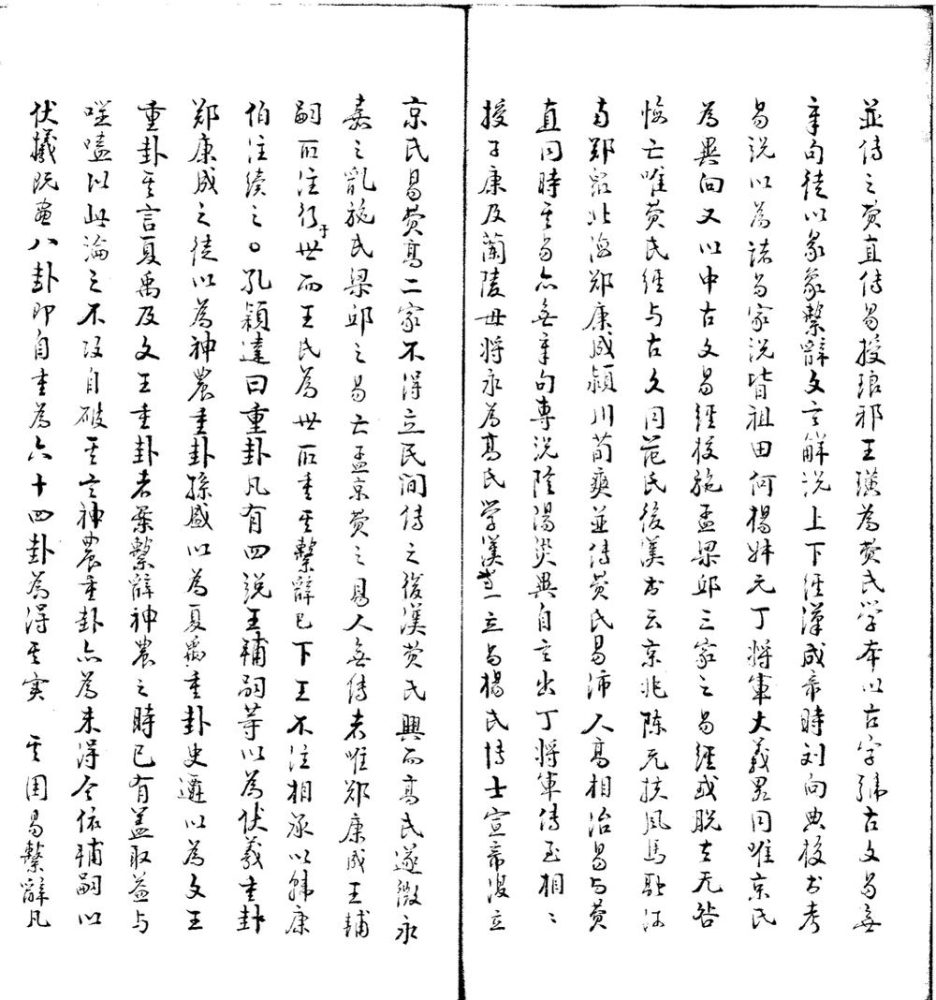 並傳之费直传易授琅邪王璜為费氏学本以古字號古文易無
章句徒以彖象繫辭文言解说上下经漢成帝時刘向典校书考
易说以為诸易家说皆祖田何楊叔元丁将軍大義畧同唯京氏
為異向又以中古文易经校施孟梁邱三家之易经或脱去无咎
悔亡唯费氏经与古文同范氏後漢书云京兆陈元扶风馬融河
南郑众北海郑康成颍川荀爽並传费氏易沛人高相治易与费
直同時其易亦無章句專说陰陽災異自言出丁将軍传至相〻
授子康及蘭陵毋将永為高氏学漢初立易楊氏博士宣帝復立
京氏易费高二家不得立民间传之後漢费氏興而高氏遂微永
嘉之亂施氏梁邱之易亡孟京费之易人無传者唯郑康成王輔
嗣所注行于世而王氏為世所重其繫辭已下王不注相承以韩康
伯注续之〇孔颖達曰重卦凡有四说王辅嗣等以為伏羲重卦
郑康成之徒以為神農重卦孫盛以為夏禹重卦史遷以為文王
重卦其言夏禹及文王重卦者案繫辭神農之時已有盖取益与
噬嗑以此論之不攻自破其言神農重卦亦為未得今依辅嗣以
伏羲既畫八卦即自重為六十四卦為得其实 其用易繫辭凡